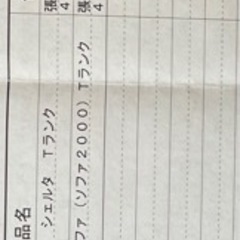 品名
シェルタ Tランク
張
4
ファ（ソファ2000）Tランク
張
4